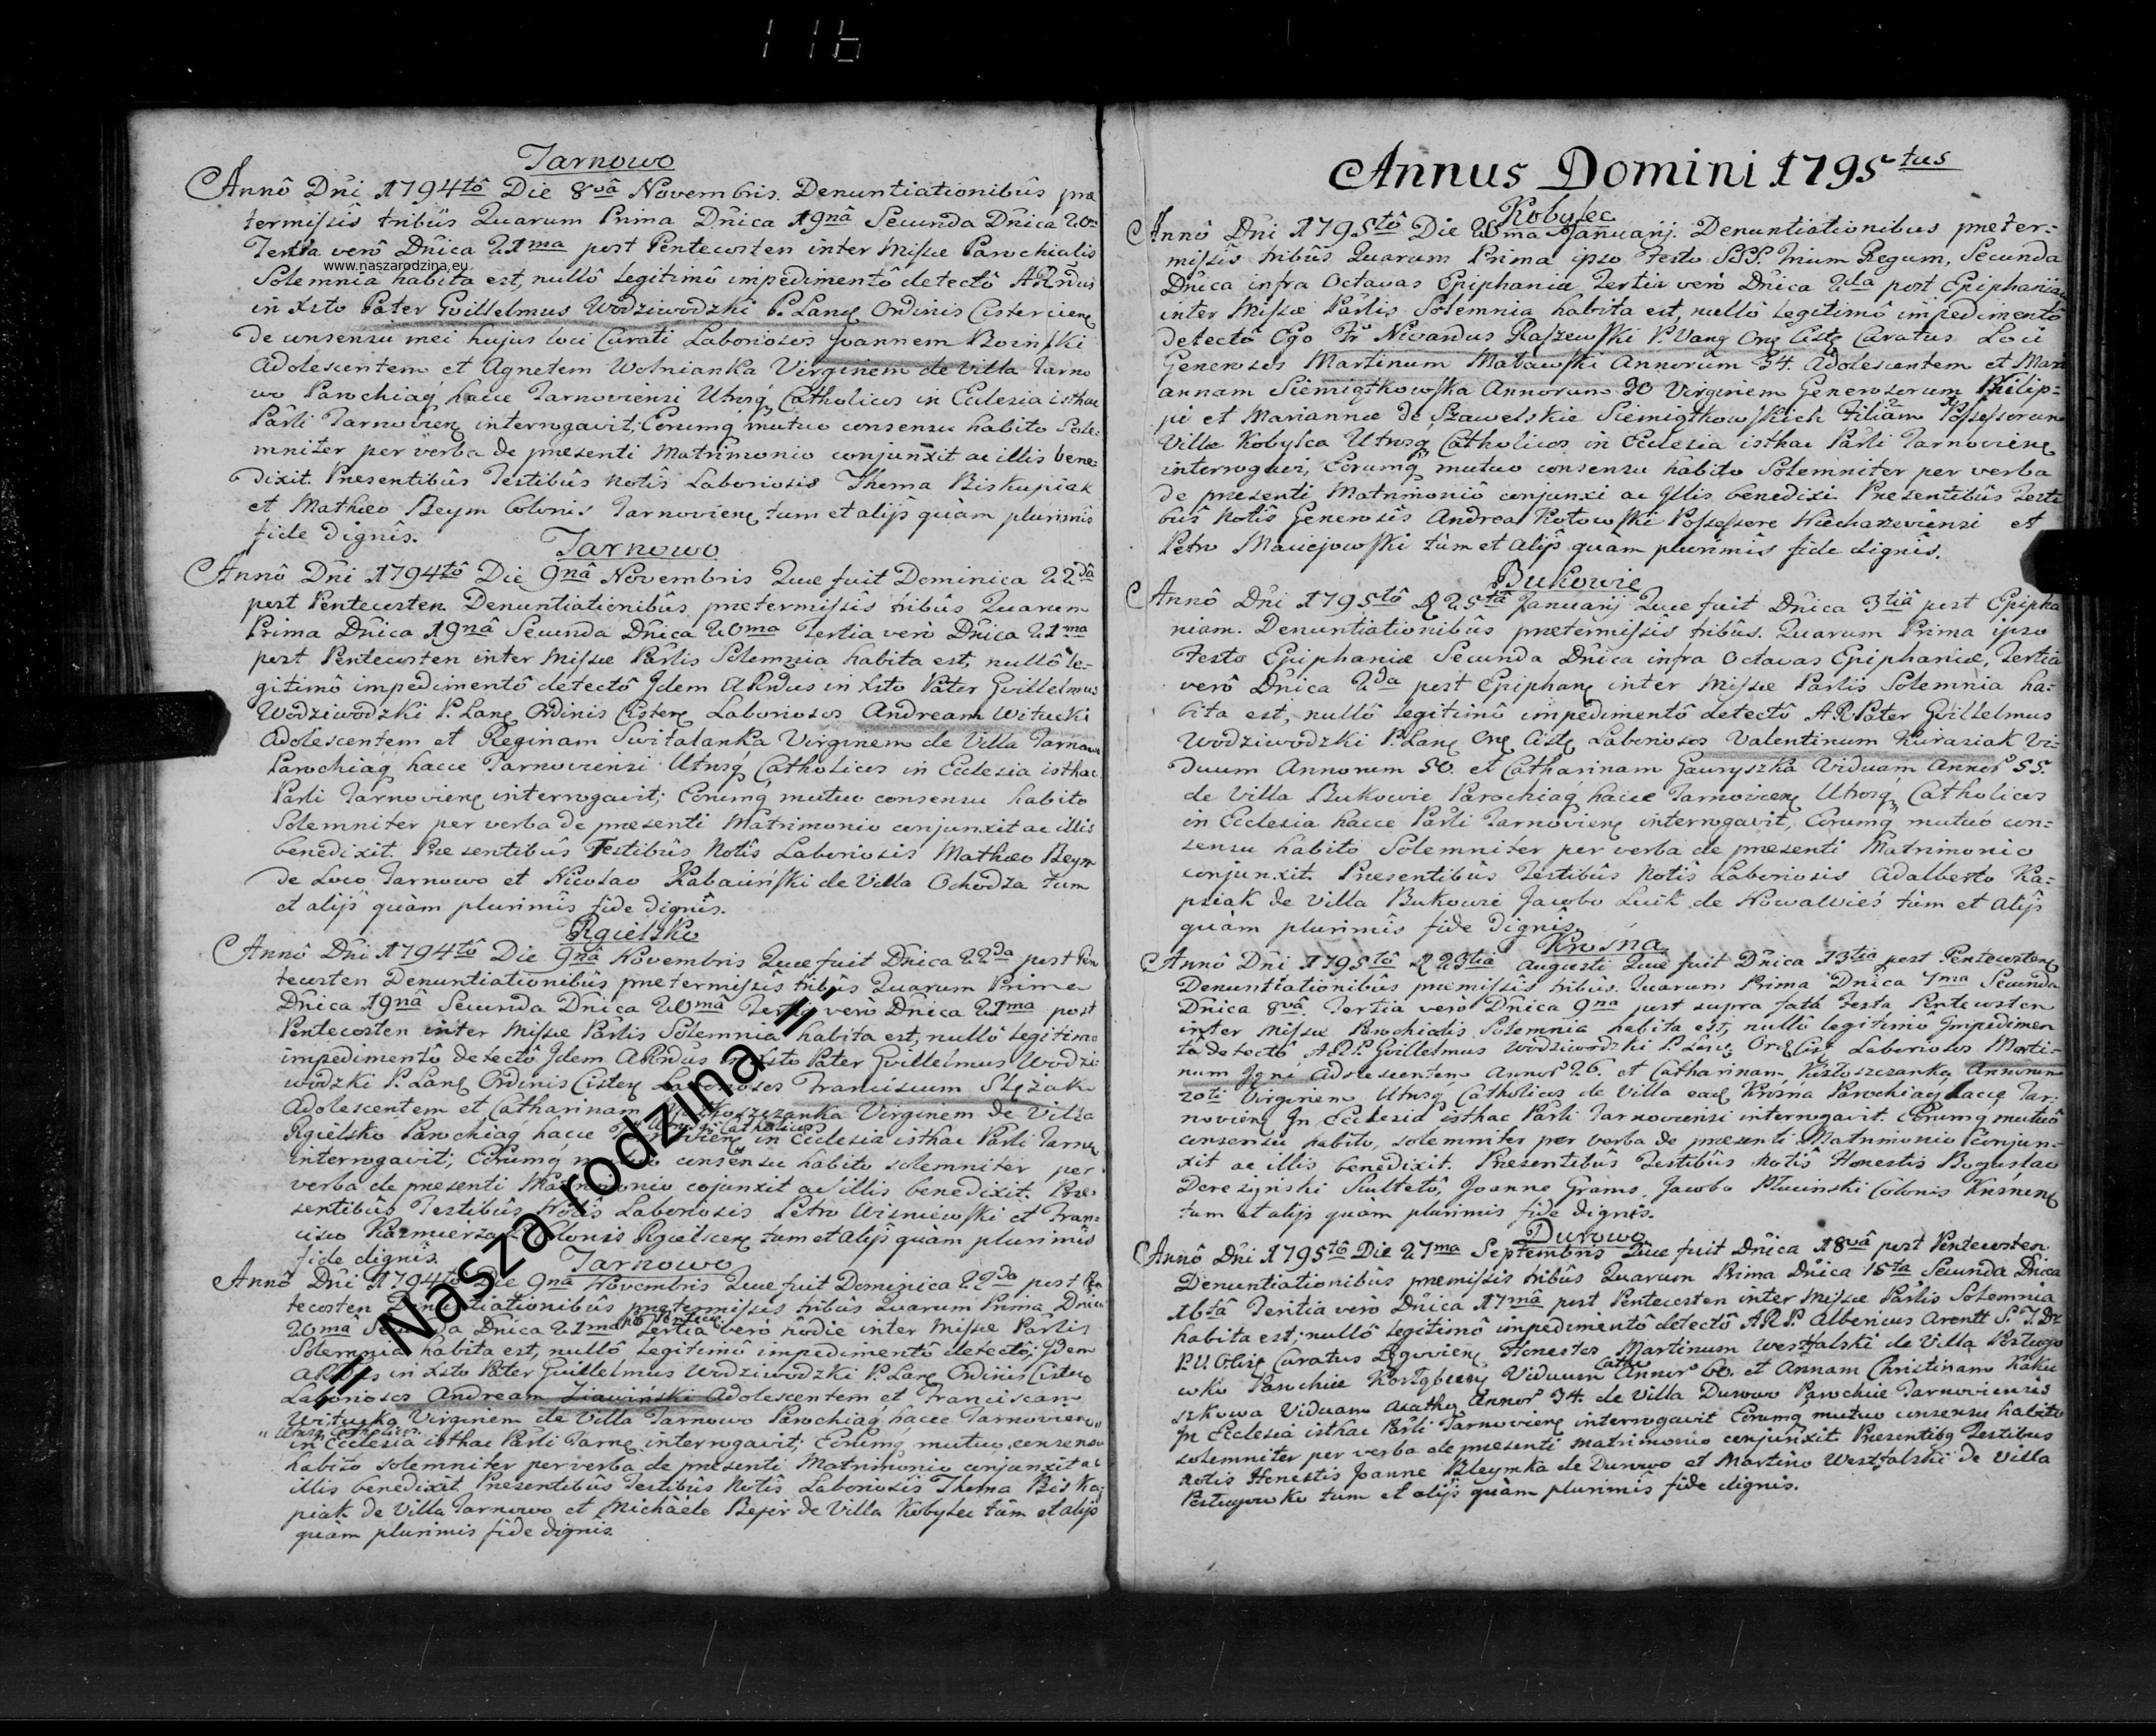 116
Tarnowo
Annô Dñi 1794tô Die 8vâ Novembris. Denuntiationibûs præ
termissîs tribûs Quarum Prima Dñica 19nâ Secunda Dñica 20ma
Tertia verò Dñica 21ma post Pentecosten inter Missæ Parochialis
www.naszarodzina.eu
Solemnia habita est, nullô legitimô impedimentô detectô ARndus
in Xsto Pater Guillelmus Wodziwodzki P. Lanę Ordinis Cistercienę
de consensu mei hujus loci Curati Laboriosos Joannem Boinski
Adolescentem et Agnetem Wolnianka Virginem de Villa Tarno
wo Parochiaq hacce Tarnoviensi Utrosq Catholicos in Ecclesia isthac
Parli Tarnovienę interrogavit; Eorumq mutuo consensu habito Sole-
mniter per verba de præsenti Matrimonio conjunxit ac illis bene-
dixit. Præsentibûs Testibûs Notîs Laboriosis Thoma Biskupiak
et Mathæo Beym Colonis Tarnovienę tum et alijs quàm plurimis
fide dignîs.
Tarnowo
Annô Dñi 1794tô Die 9nâ Novembris Quæ fuit Dominica 22dâ
post Pentecosten. Denuntiationibûs prætermissîs tribûs Quarum
Prima Dñica 19nâ Secunda Dñica 20ma Tertia verò Dñica 21ma
post Pentecosten inter Missæ Parlis Solemnia habita est, nullô le-
gitimô impedimentô detectô Idem ARndus in Xsto Pater Guillelmus
Wodziwodzki P. Lanę Ordinis Cisterę Laboriosos Andream Witucki
Adolescentem et Reginam Switalanka Virginem de Villa Tarnowo
Parochiaq hacce Tarnoviensi Utrosq Catholicos in Ecclesia isthac
Parli Tarnovienę interrogavit; Eorumq mutuo consensu habito
Solemniter per verba de præsenti Matrimonio conjunxit ac illis
benedixit. Præsentibûs Testibûs Notîs Laboriosis Mathæo Beym
de Loco Tarnowo et Nicolao Rabaciński de Villa Ochodza tum
et alijs quàm plurimis fide dignîs.
Rgielsko
Annô Dñi 1794tô Die 9nâ Novembris Quæ fuit Dñica 22da post Pen
tecosten Denuntiationibûs prætermissîs tribûs Quarum Prima
Dñica 19nâ Secunda Dñica 20mâ Tertia verò Dñica 21ma post
Pentecosten inter Missæ Parlis Solemnia habita est, nullô legitimo
impedimentô detectô Idem ARndus in Xsto Pater Guillelmus Wodzi-
wodzki P. Lanę Ordinis Cisterę Laboriosos Franciscum Slęzak
Adolescentem et Catharinam Virginem de Villa
Rgielsko Parochiaq hacce Tarnovienę Utrosq Catholicos in Ecclesia isthac Parli Tarnę
interrogavit; Eorumq mutuo consensu habito solemniter per
verba de præsenti Matrimonio cojunxit ac illis benedixit. Præ-
sentibûs Testibûs Notîs Laboriosis Petro Wisniewski et Fran-
cisco Kazmierza Colonis Rgielscenę tum et alijs quàm plurimîs
fide dignîs.
Tarnowo
Annô Dñi 1794tô Die 9nâ Novembris Quæ fuit Dominica 22da post Pen
tecosten Denuntiationibûs prætermissis tribûs Quarum Prima Dñica
20mâ Secunda Dñica 21ma post Pentecę Tertia verò hodie inter Missæ Parlis
Solemnia habita est, nullô legitimô impedimentô detectô; Idem
ARndus in Xsto Pater Guillelmus Wodziwodzki P. Lanę Ordinis Cisterę
Laboriosos Andream Ziawiński Adolescentem et Franciscam
Witucka Virginem de Villa Tarnowo Parochiaq hacce Tarnovienę
Utrosq Catholicos
in Ecclesia isthac Parli Tarnę interrogavit; Eorumq mutuo consensu
habito solemniter per verba de præsenti Matrimonio conjunxit ac
illis benedixit. Præsentibûs Testibûs Notîs Laboriosis Thoma Bisku-
piak de Villa Tarnowo et Michaele Bejer de Villa Kobylec tùm et alijs
quàm plurimis fide dignis.
" Nasza rodzina "
Annus Domini 1795tus
Kobylec
Annô Dñi 1795tô Die Januarij. Denuntiationibus præter-
missîs tribûs Quarum Prima ipso Festo SSS. Trium Regum, Secunda
Dñica infra Octavas Epiphaniæ Tertia verò Dñica 2da post Epiphaniam
inter Missæ Parlis Solemnia habita est, nullô legitimô impedimentô
detectô Ego Fr Nivardus Raszewski P. Vang Orę Cistę Curatus Loci
Generosos Martinum Matawski Annorum 34. Adolescentem et Mari
annam Siemiątkowska Annorum 30 Virginem Generosorum Philip-
pi et Mariannæ de Szawelskie Siemiątkowskich Filiam Possessorum
Villæ Kobylca Utrosq Catholicos in Ecclesia isthac Parli Tarnovienę
interrogavi, Eorumq mutuo consensu habito Solemniter per verba
de præsenti Matrimoniô conjunxi ac Illis benedixi. Præsentibûs Testi
bûs Notîs Generosîs Andrea Kotowski Possessore Wiecharzeviensi et
Petro Maciejowski tùm et Alijs quam plurimîs fide dignîs.
Bukowie
Annô Dñi 1795tô D 25tâ Januarij Quæ fuit Dñica 3tiâ post Epipha
niam. Denuntiationibûs prætermissîs tribûs. Quarum Prima ipso
Festo Epiphaniæ Secunda Dñica infra Octavas Epiphaniæ, Tertia
verò Dñica 2da post Epiphanę inter Missæ Parlis Solemnia ha-
bita est, nullô legitimô impedimentô detectô ARPater Guillelmus
Wodziwodzki P. Lanę Orę Cistę Laboriosos Valentinum Kurasiak Vi-
duum Annorum 50. et Catharinam Gauryszka Viduam Annor 55.
de Villa Bukowie Parochiaq hacce Tarnovienę Utrosq Catholicos
in Ecclesia hacce Parli Tarnovienę interrogavit, Eorumq mutuo con-
sensu habito Solemniter per verba de præsenti Matrimonio
conjunxit. Præsentibûs Testibûs Notîs Laboriosis Adalberto Ka-
psiak de Villa Bukowie Jacobo Luik de Nowawieś tùm et Alijs
quàm plurimîs fide dignîs.
Krośna
Annô Dñi 1795tô D 23tiâ Augusti Quæ fuit Dñica 13tia post Pentecostenę
Denuntiationibûs præmissîs tribus. Quarum Prima Dñica 7ma Secunda
Dñica 8vâ Tertia verò Dñica 9na post supra fata Festa Pentecosten
inter Missæ Parochialis Solemnia habita est, nullô legitimô Impedimen
tô detectô ARP. Guillelmus Wodziwodzki P. Lanę Orę Cist Laboriosos Marti-
num Adolescentem Annor 26. et Catharinam Annorum
20ti Virginem Utrosq Catholicos de Villa eadę Krośna Parochiaq hacce Tar-
novienę In Ecclesia isthac Parli Tarnoviensi interrogavit. Eorumq mutuô
consensu habito, solemniter per verba de præsenti Matrimonio conjun-
xit ac illis benedixit. Præsentibûs Testibûs Notîs Honestis Boguslao
Derezyński Scultetô, Joanne Grams, Jacobo Plucinski Colonis Krśnenę
tum et alijs quàm plurimis fide dignis.
Durowo
Annô Dñi 1795tô Die 27ma Septembris Quæ fuit Dñica 18vâ post Pentecosten
Denuntiationibûs præmissis tribûs Quarum Prima Dñica 15ta Secunda Dñica
16tâ Teritia verò Dñica 17mâ post Pentecosten inter Missæ Parlis Solemnia
habita est, nullô legitimô impedimentô detectô A.R.P. Albericus Arentt S.T.Dr
Curatus Honestos Martinum Westfalski de Villa Postugo
wko Parochiæ Viduum Catho Annor 60. et Annam Christinam Kaku
szkowa Viduam Acatho Annor 34. de Villa Durowo Parochiæ Tarnoviensis
In Ecclesia isthac Parli Tarnovienę interrogavit Eorumq mutuo consensu habito
solemniter per verba de præsenti matrimonio conjunxit Præsentibq Testibus
notis Honestis Joanne Bleymka de Durowo et Martino Westfalski de Villa
Postugowko tum et alijs quàm plurimîs fide dignis.